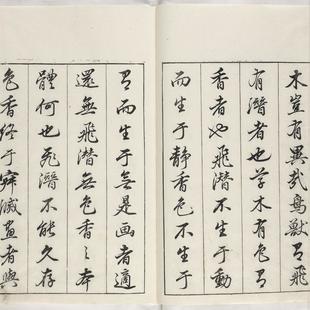 木豈有異哉鳥獸有飛
有潛者也草木有色有
香者也飛潛不生于動
而生于靜香色不生于
有而生于無是畫者適
還無飛潛無色香之本
體何也飛潛不能久存
色香終于寂滅畫者與